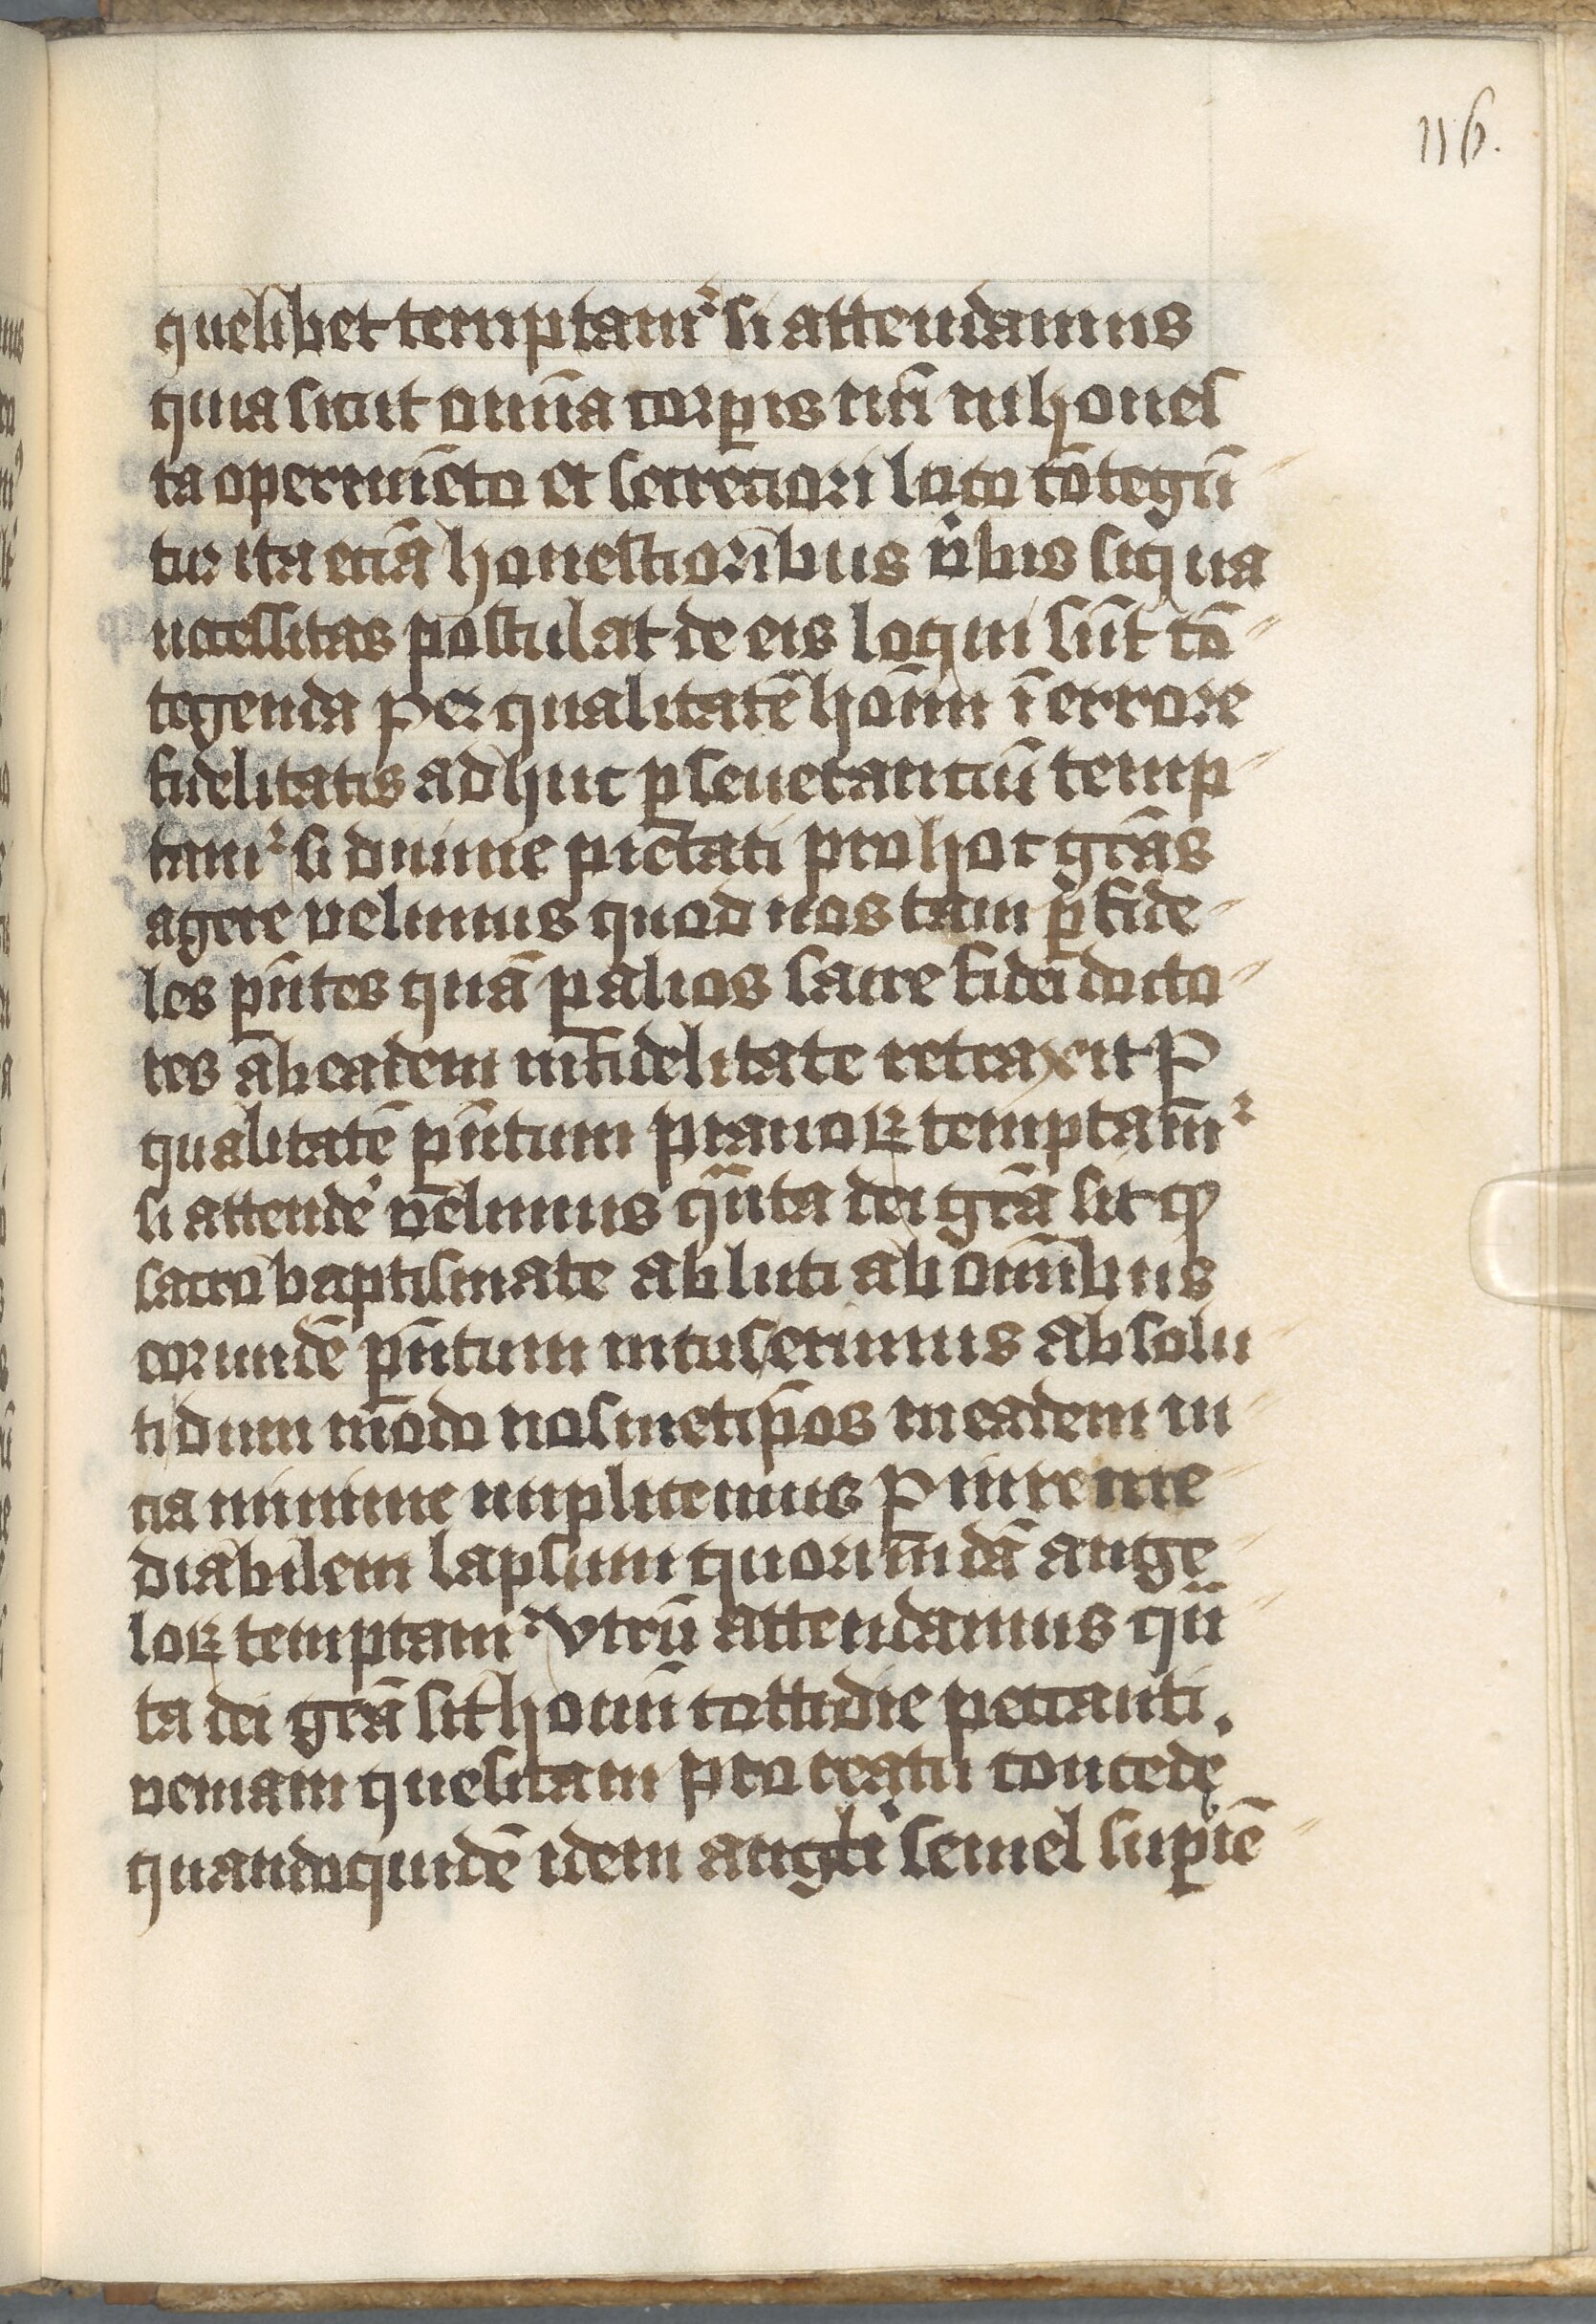 116.
quelibet temptamᷣ si attendamus
quia sicut om̅ia corꝑis nr̅i inhones
ta operim̅eto et secretiori loco co̅tegu̅
tur ita etia̅ honestioribus v̕bis siqua
necessitas postulat de eis loqui su̅t co̅
tegenda Per qualitate̅ ho̅inu̅ i̅ errore
fidelitatis adhuc ꝑseuerantiu̅ temp
tamᷣ si diuine pietati pro hoc gr̅as
agere velimus quod nos tam ꝑ fide
les pn̅tes qua̅ ꝑ alios sacre fidei docto
res ab eadem infidelitate retraxit P
qualitate̅ pn̅tum prauoꝝ temptam̅ᷣ
si attende̕ velimus qn̅ta dei gr̅a sit ꝙ
sacro baptismate abluti ab om̅ibus
eorunde̅ pn̅tum incuserimus absolu
ti dum modo nosmetip̅os in eadem ui
cia minime implicemus P inreme
diabilem lapsum quorumda̅ ange
loꝝ temptamᷣ vtru̅ attendamus qu̅
ta dei gr̅a sit homi̅ cottidie peccanti.
veniam quesitam pro reatu concede̕
quandoquide̅ idem angli̕ semel suꝑie̅